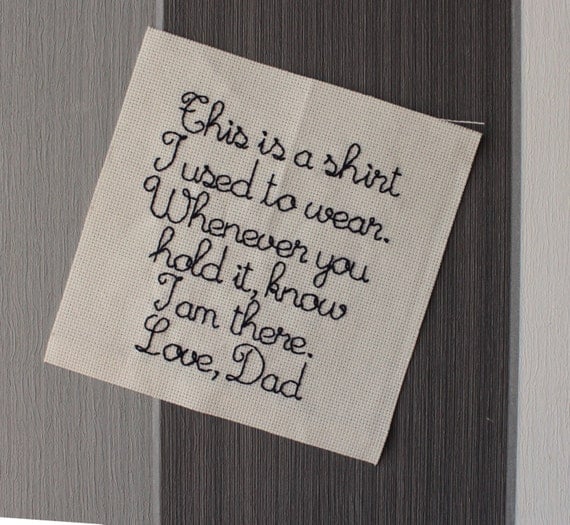 This is a shirt
I used to wear.
Whenever you
hold it, know
I am there.
Love, Dad